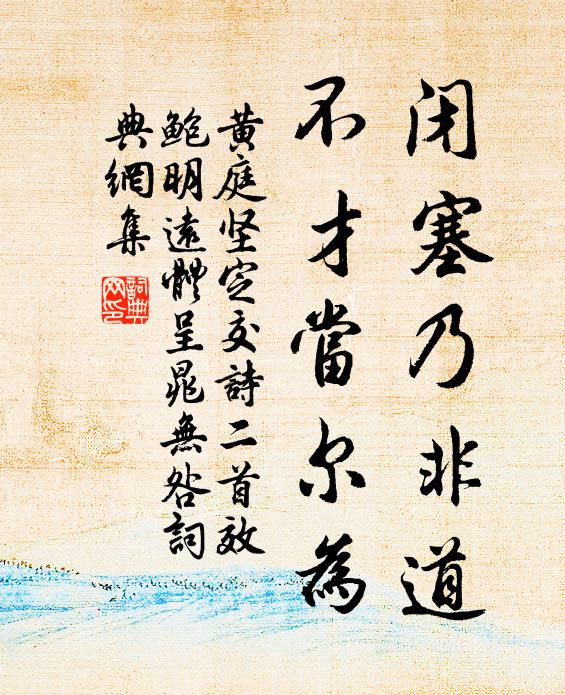 闭塞乃非道
不才當尔為
黄庭坚定交詩二首效
鲍明遠體呈晁無咎詞
典網集
詞典
网印